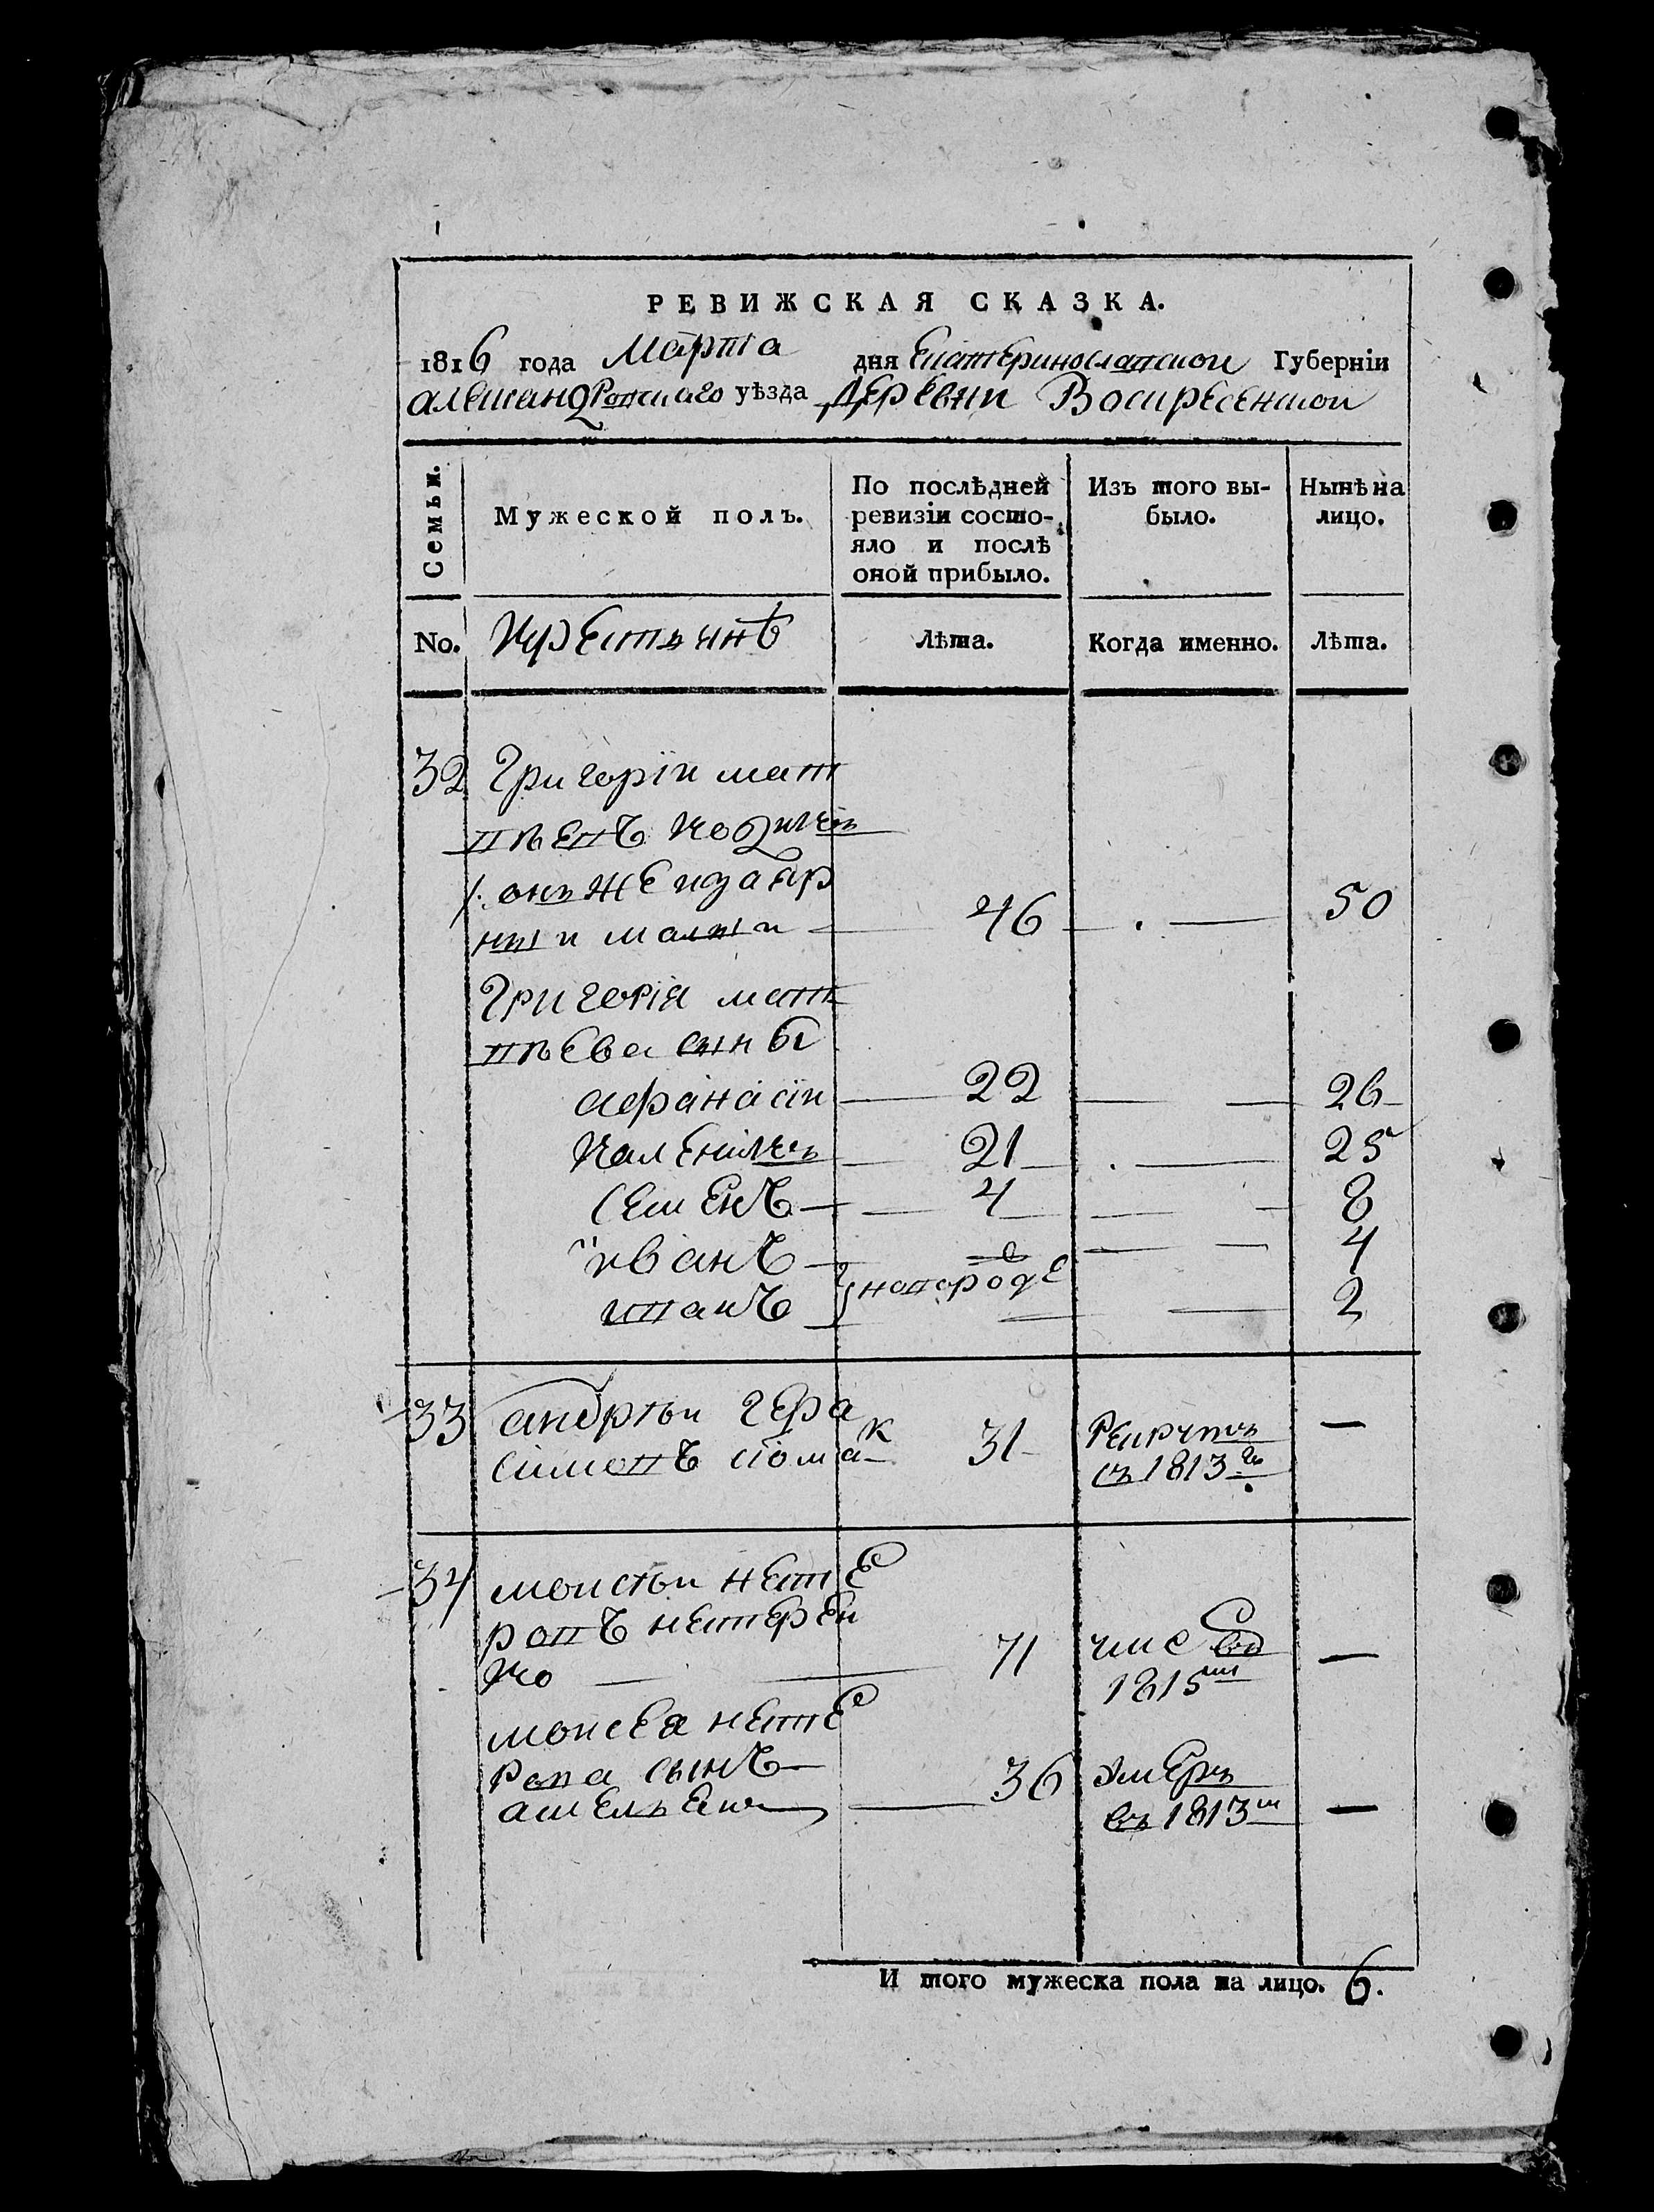 РЕВИЖСКАЯ СКАЗКА.
1816 года Марта дня Екатеринославской Губерніи
александровскаго уѣзда Деревни Воскресенской
Семьи.
Мужеской полъ.
По послѣдней ревизіи состояло и послѣ оной прибыло.
Изъ того выбыло.
Нынѣ на лицо.
No. Крестьянѣ Лѣта. Когда именно. Лѣта.
32 Григоріи мат
вѣевъ
46 50
Григорія мат
вѣева сыны
афанасіи 22 26
21 25
семенъ 4 8
иванъ 4
новороде
иванъ 2
33 андрѣи гера
симовъ 31 —
въ 1813
34 моисѣи несте
ровъ нестерен
ко 71 —
1815
моисея несте
рова сынъ 36 умеръ
въ 1813 —
И того мужеска пола на лицо. 6.